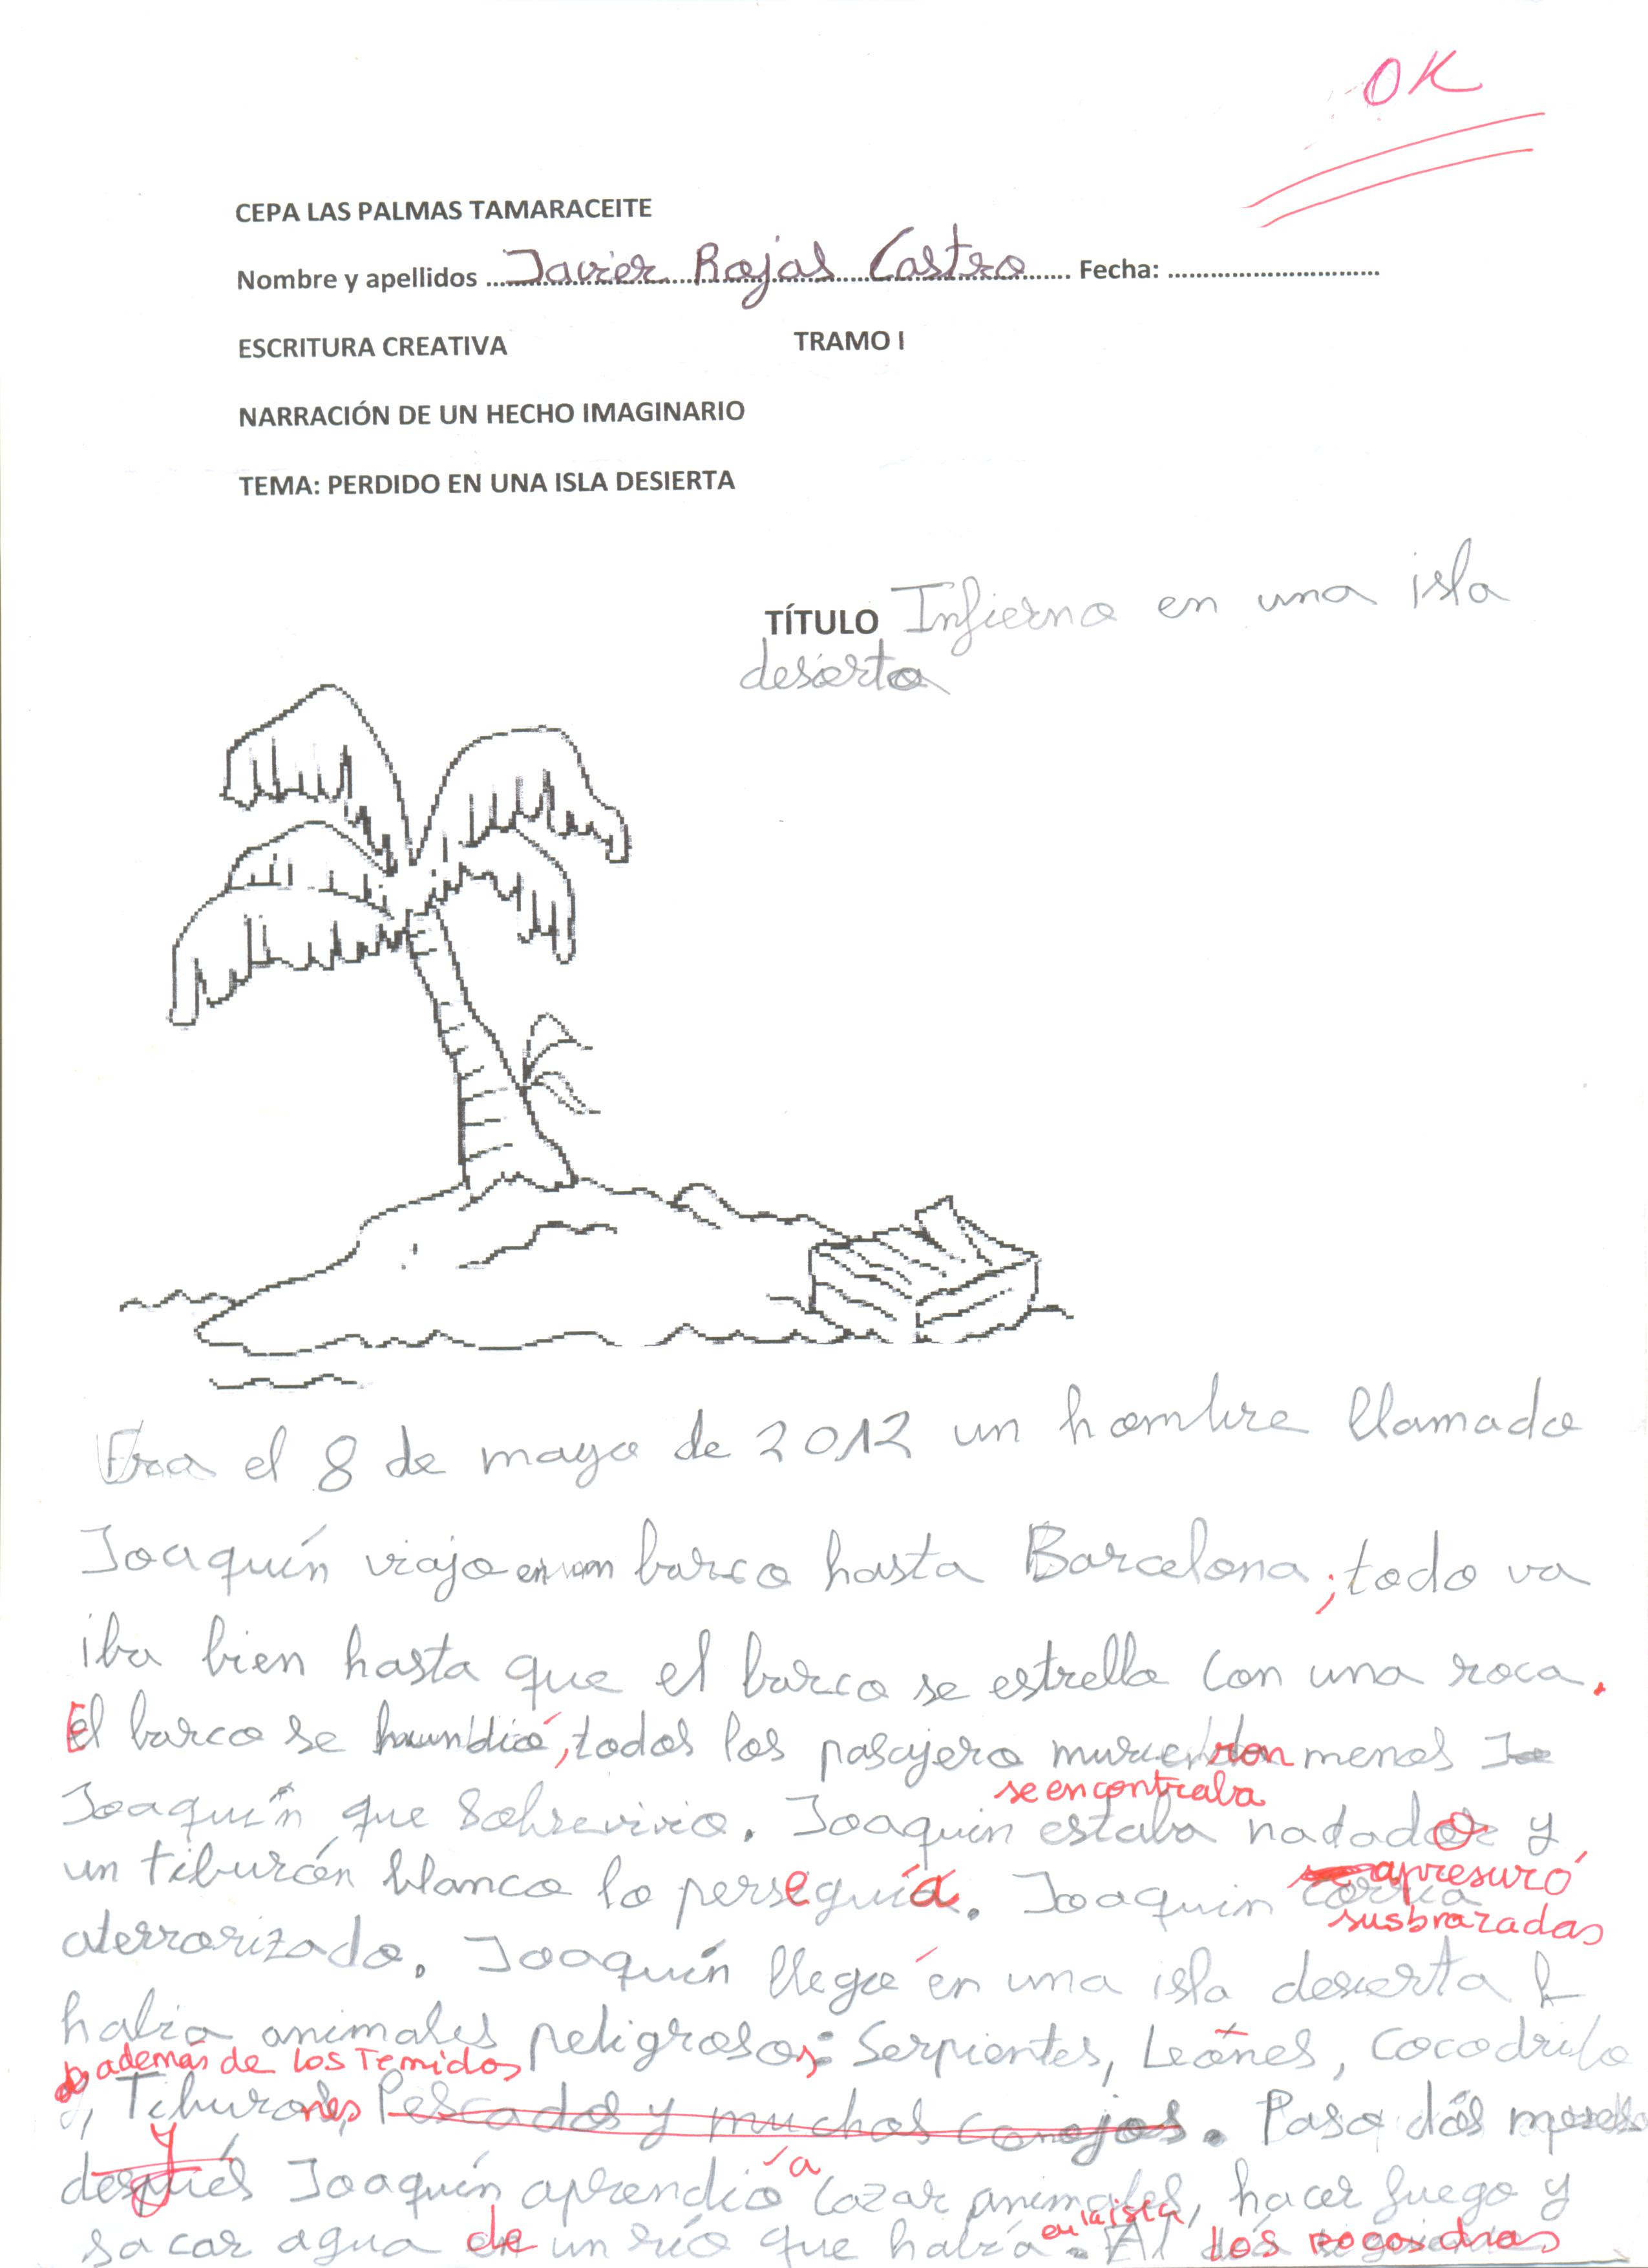 OK
CEPA LAS PALMAS TAMARACEITE
Nombre y apellidos Javier Rojas Castro Fecha:
ESCRITURA CREATIVA TRAMO I
NARRACIÓN DE UN HECHO IMAGINARIO
TEMA: PERDIDO EN UNA ISLA DESIERTA
TÍTULO Infierno en una isla
desierta
Era el 8 de mayo de 2012 un hombre llamado
Joaquín viajo en un barco hasta Barcelona; todo va
iba bien hasta que el barco se estrello con una roca.
El barco se hundió, todos los pasajero murieron menos
se encontraba
Joaquín que sobrevivio. Joaquin estaba nadado y
un tiburón blanco lo perseguía. Joaquin corria
apresuró
sus brazadas
aterrorizado. Joaquín llegó en una isla desierta
había animales peligrosos: Serpientes, Leones, Cocodrilo
además de los temidos
, Tiburones, Pescados y muchos conejos. Paso dos meses
y
después Joaquín aprendió a cazar animales, hacer fuego y
en la isla
sacar agua de un río que había. Al los pocos dias